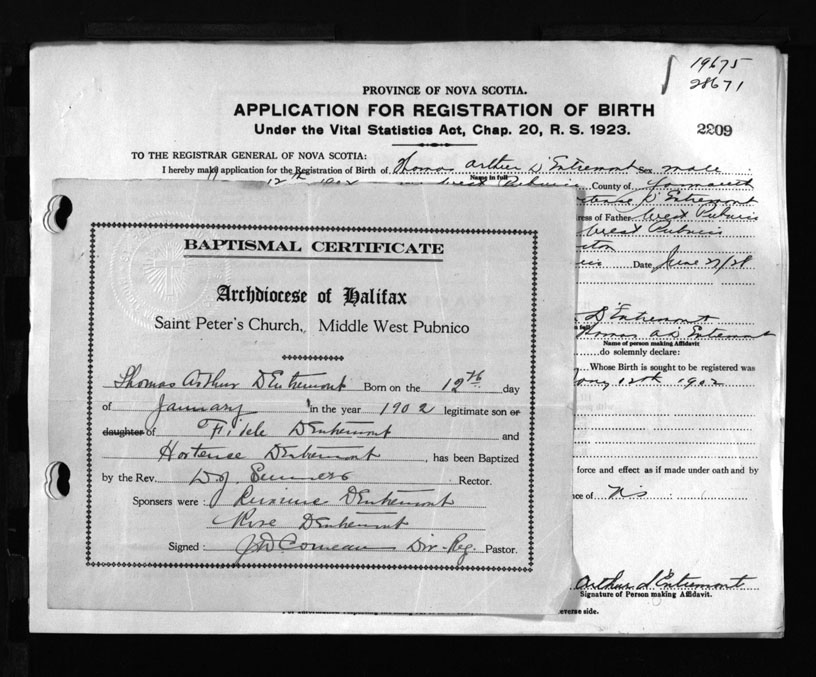 19675
28671
PROVINCE OF NOVA SCOTIA.
APPLICATION FOR REGISTRATION OF BIRTH
Under the Vital Statistics Act, Chap. 20, R. S. 1923.
2209
TO THE REGISTRAR GENERAL OF NOVA SCOTIA:
I hereby make application for the Registration of Birth of Thomas Arthur D'Entremont Sex male
Name in full
12th West Pubnico County of Yarmouth
D'Entremont
ress of Father West Pubnico
West Pubnico
Date June 27/28
D'Entremont
Thomas A D'Entremont
Name of person making Affidavit
do solemnly declare:
Whose Birth is sought to be registered was
12th 1902
force and effect as if made under oath and by
nce of N.S.
Arthur d'Entremont
Signature of Person making Affidavit.
everse side.
BAPTISMAL CERTIFICATE
Archdiocese of Halifax
Saint Peter's Church, Middle West Pubnico
Thomas Arthur D'Entremont Born on the 12th day
of January in the year 1902 legitimate son or
daughter of Fidele D'Entremont and
Hortense D'Entremont, has been Baptized
by the Rev. Rector.
Sponsers were: D'Entremont
Rose D'Entremont
Signed: J D Comeau Pastor.